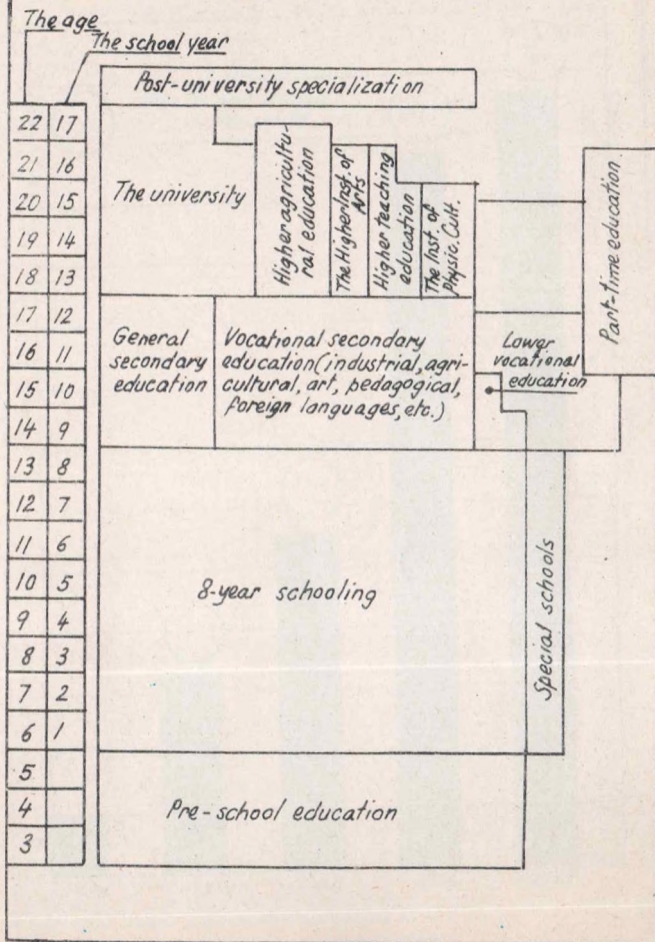 The age
The school year
Post-university specialization
22 17
21 16
20 15
19 14
18 13
17 12
16 11
15 10
14 9
13 8
12 7
11 6
10 5
9 4
8 3
7 2
6 1
5
4
3
The university
Higher agricultu-
ral education
The Higher Inst. of
Arts
Higher teaching
education
The Inst. of
Physic. Cult.
Part-time education
General
secondary
education
Vocational secondary
education (industrial, agri-
cultural, art, pedagogical,
foreign languages, etc.)
Lower
vocational
education
8-year schooling
Special schools
Pre-school education